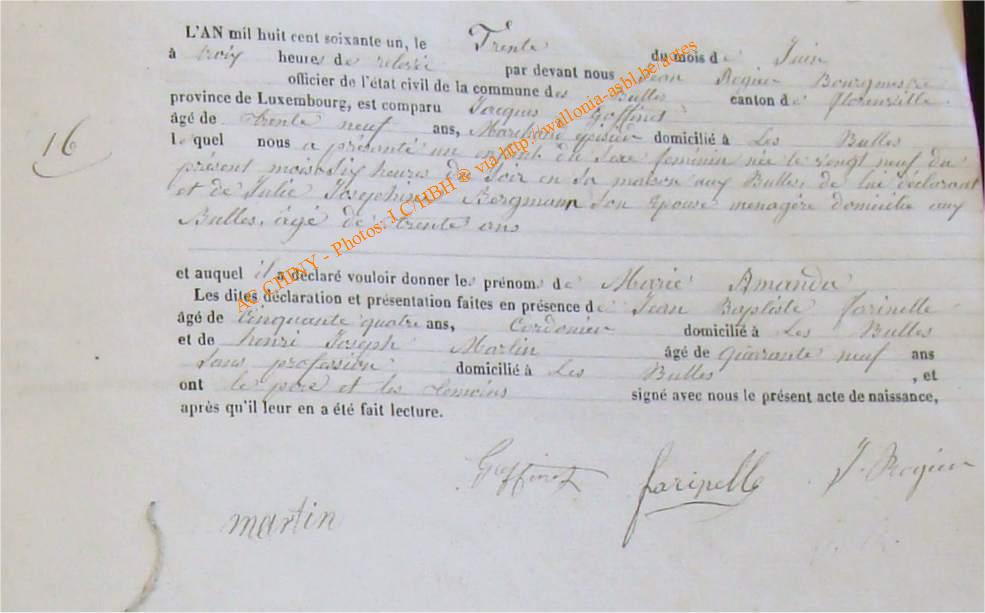 L'AN mil huit cent soixante un, le Trente du mois de Juin
à trois heures de relevée par devant nous Jean Rogier Bourgmestre
officier de l'état civil de la commune des Bulles canton de florenville
province de Luxembourg, est comparu Jacques Goffinet
âgé de trente neuf ans, Marchand épicier domicilié à Les Bulles
16
le quel nous a présenté un enfant du Sexe feminin née le vingt neuf du
présent mois Six heures du Soir en Sa maison aux Bulles, de lui déclarant
et de Julie Josephine Bergmann Son épouse menagère domicilié aux
Bulles, âgé de trente ans
et auquel il a déclaré vouloir donner les prénoms de Marie Amanda
Les dites déclaration et présentation faites en présence de Jean Baptiste farinelle
âgé de Cinquante quatre ans, Cordonnier domicilié à Les Bulles
et de henri Joseph Martin âgé de quarante neuf ans
Sans profession domicilié à Les Bulles , et
ont le père et les témoins signé avec nous le présent acte de naissance,
après qu'il leur en a été fait lecture.
Goffinet farinelle J. Rogier
martin
AC CHINY - Photos: LC/HBH ® via http://wallonia-asbl.be/actes